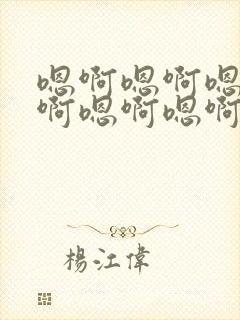 嗯啊嗯啊嗯
啊嗯啊嗯啊
楊江偉